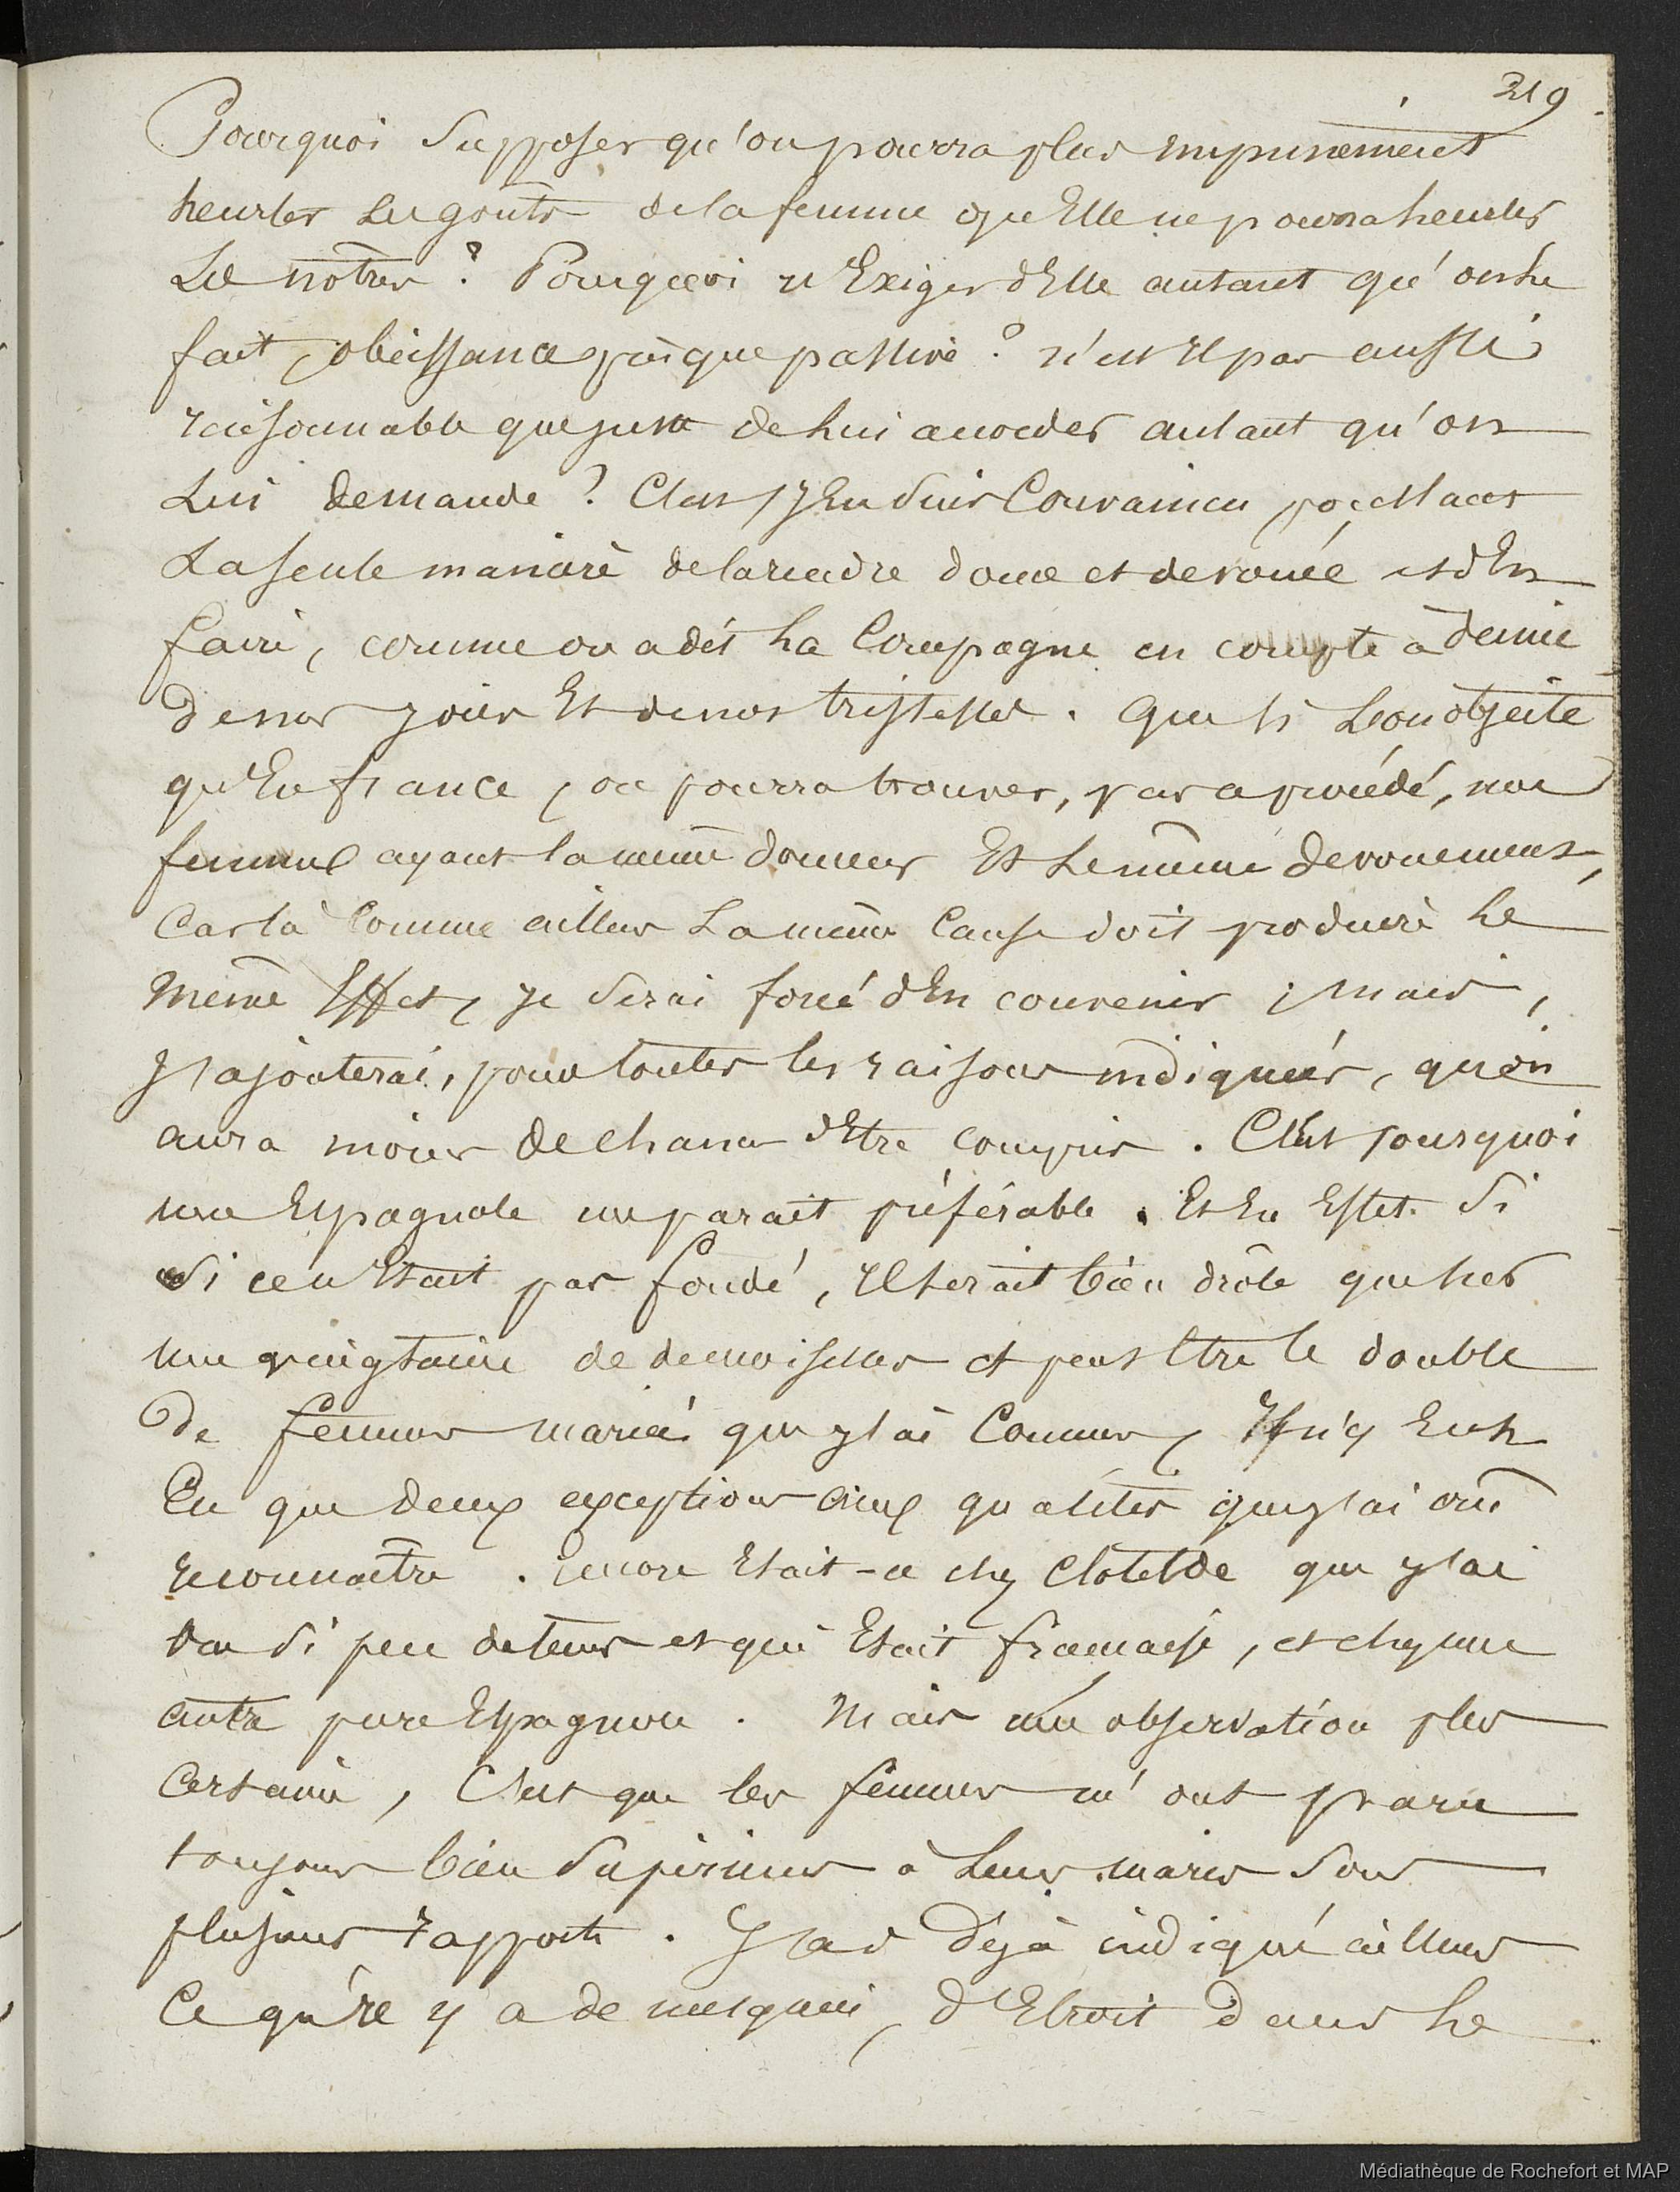 219
Pourquoi supposer qu'on pourra plus impunément
heurter les goûts de la femme qu'Elle ne pourra heurter
Les notres ? Pourquoi Exiger d'Elle autant qu'on le
fait, obéissance presque passive ? n'est il pas aussi
raisonnable que juste de lui accorder autant qu'on
Lui demande ? C'est, j'En suis Convaincu,
La seule manière de la rendre douce et devouée est d'En
faire, comme on a dit la Compagne en compte à demie
de nos joies Et de nos tristesses. Que si L'on objecte
qu'En france, on pourra trouver, par ce procédé, une
femme ayant la même douceur Et le même devouement,
Car là Comme ailleurs La même Cause doit produire le
même Effet, je serai forcé d'En convenir ; mais,
J'ajouterai, pour toutes les raisons indiquées, qu'on
aura moins de chance d'Etre compris. C'Est pourquoi
une Espagnole me parait préférable. Et En Effet. Si
Si ce n'Etait pas fondé, Il serait bien drôle que sur
une vingtaine de demoiselles et peut Etre le double
De femmes mariées que j'ai Connues, Il n'y En
Eu que deux exceptions aux qualités que j'ai
reconnaitre. Encore Etait-ce chez Clotilde que j'ai
vu si peu de tems et qui Etait française, et chez une
autre pure Espagnole. Mais une observation plus
Certaine, C'Est que les femmes m'ont paru
toujours bien Supérieures à Leurs maris sous
plusieurs rapports. J'ai déjà indiqué ailleurs
Ce qu'il y a de mesquin, d'Etroit dans le
Médiathèque de Rochefort et MAP